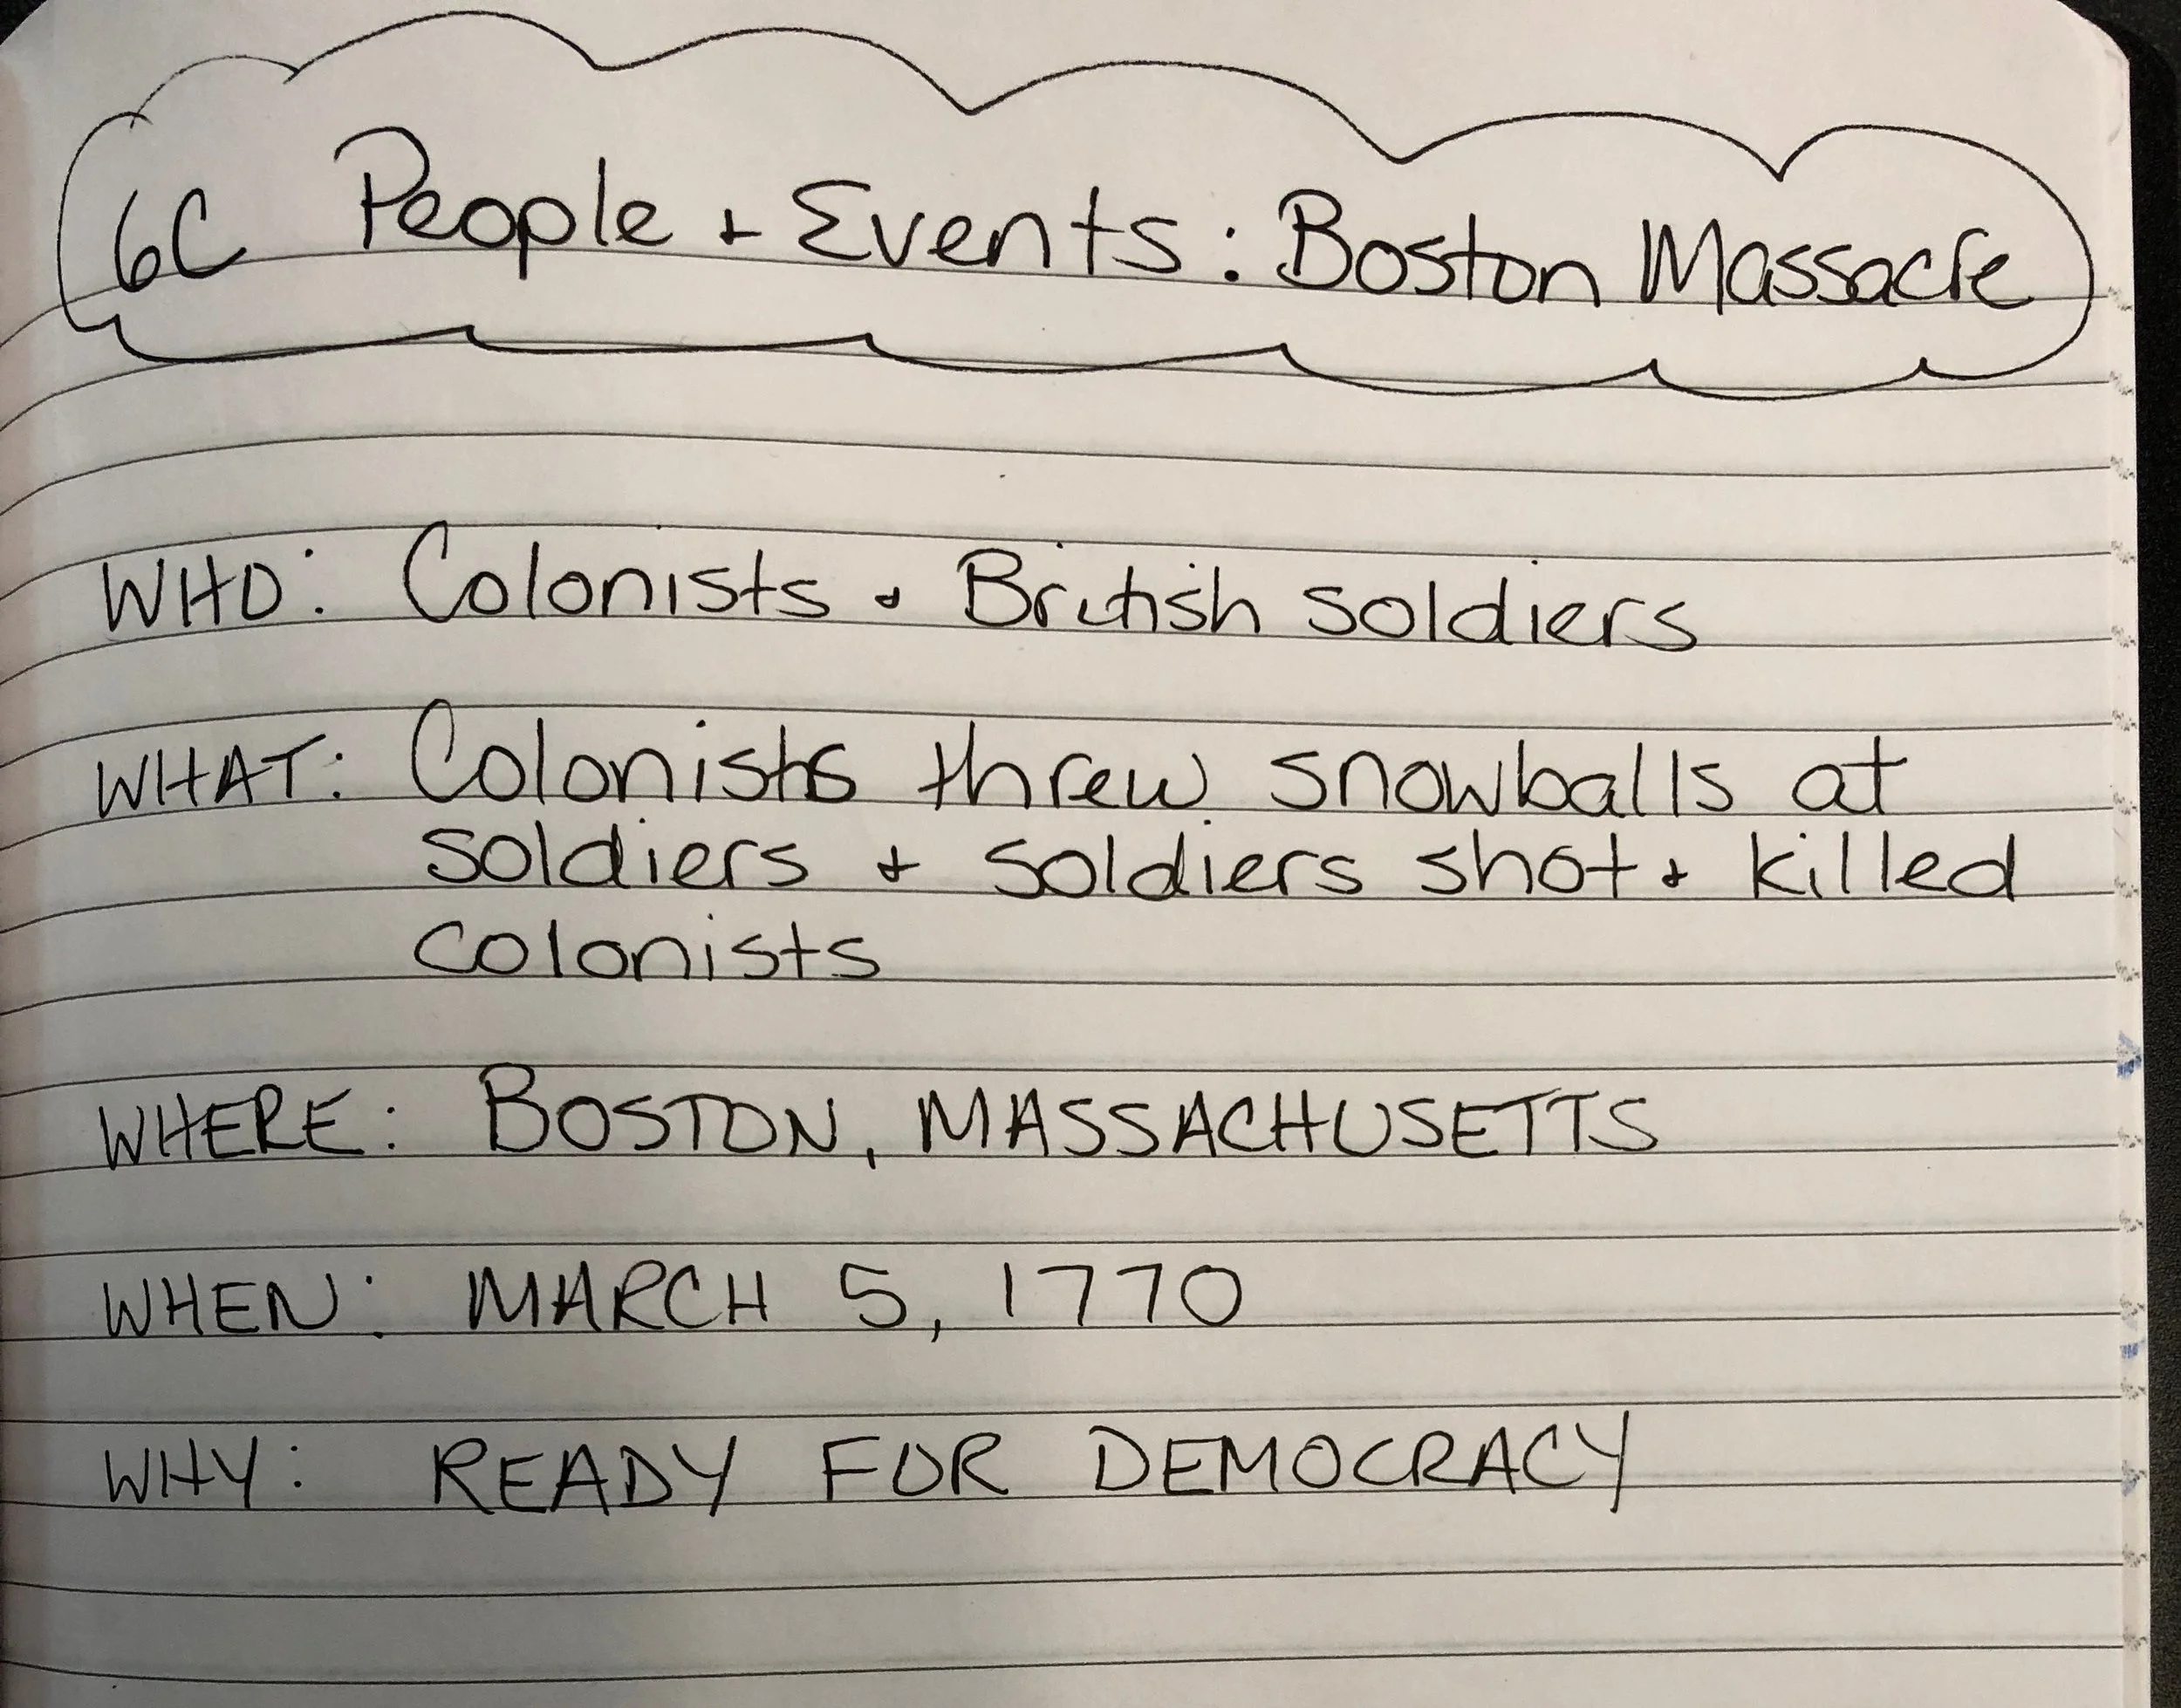 6C People + Events: Boston Massacre
WHO: Colonists + British soldiers
WHAT: Colonists threw snowballs at
soldiers + soldiers shot + killed
colonists
WHERE: BOSTON, MASSACHUSETTS
WHEN: MARCH 5, 1770
WHY: READY FOR DEMOCRACY